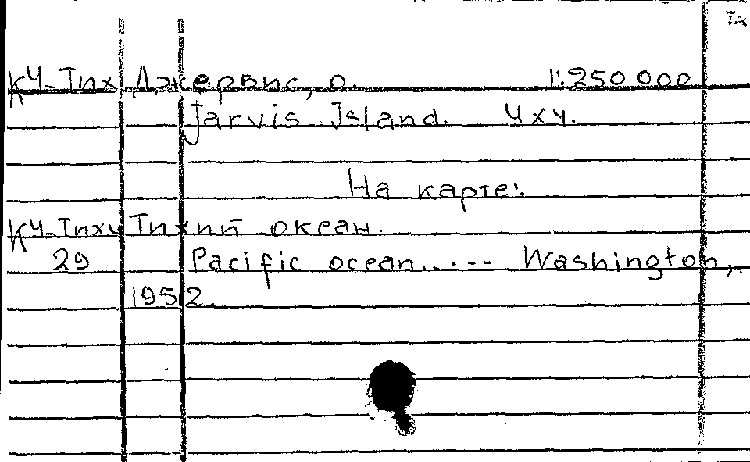 Тх
КЧ-Тих Джервис, о. 1:250 000
Jarvis Island. 4x4.
На карте:
КЧ-Тих Тихий океан.
29 Pacific ocean..... Washington,
1952.